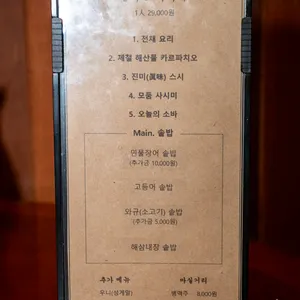 1人 25,000원
1. 전채 요리
2. 제철 해산물 카르파치오
3. 진미(眞味) 스시
4. 모듬 사시미
5. 오늘의 소바
Main. 솥밥
민물장어 솥밥
(추가금 10,000원)
고등어 솥밥
와규(소고기) 솥밥
(추가금 5,000원)
해삼내장 솥밥
추가 메뉴
마실거리
우니(성게알)
병맥주 8,000원